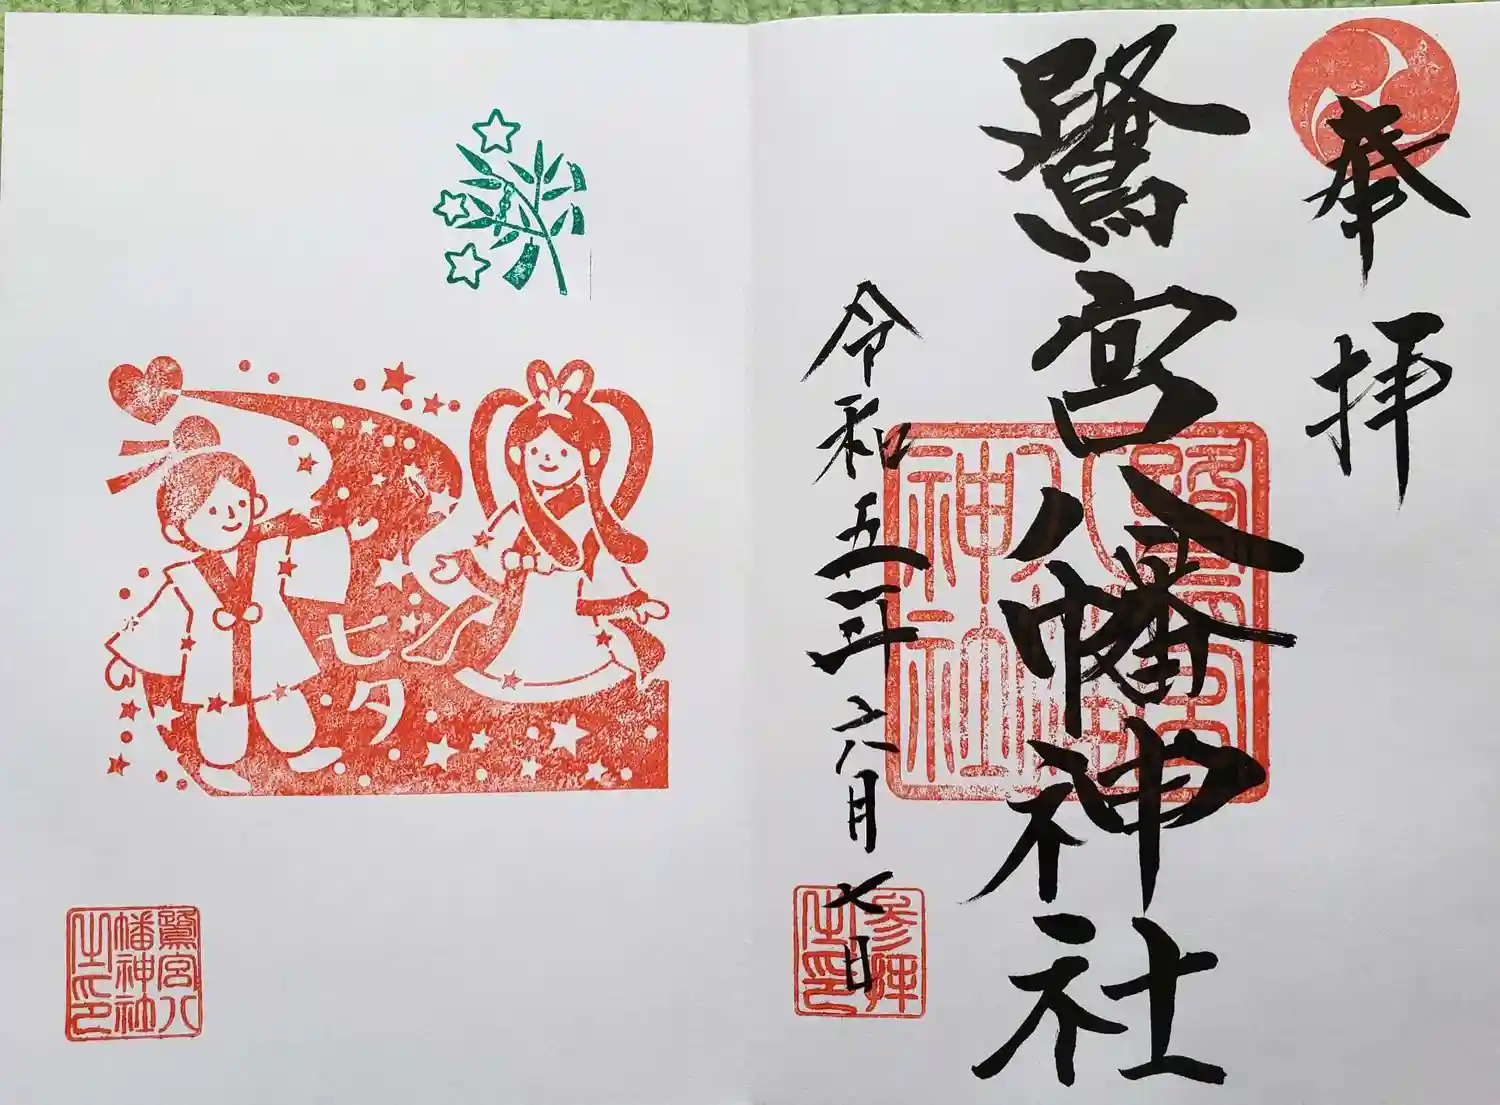 奉拝
鷺宮八幡神社
令和五年六月七日
鷺宮八
幡神社
之印
参拝
之印
七夕